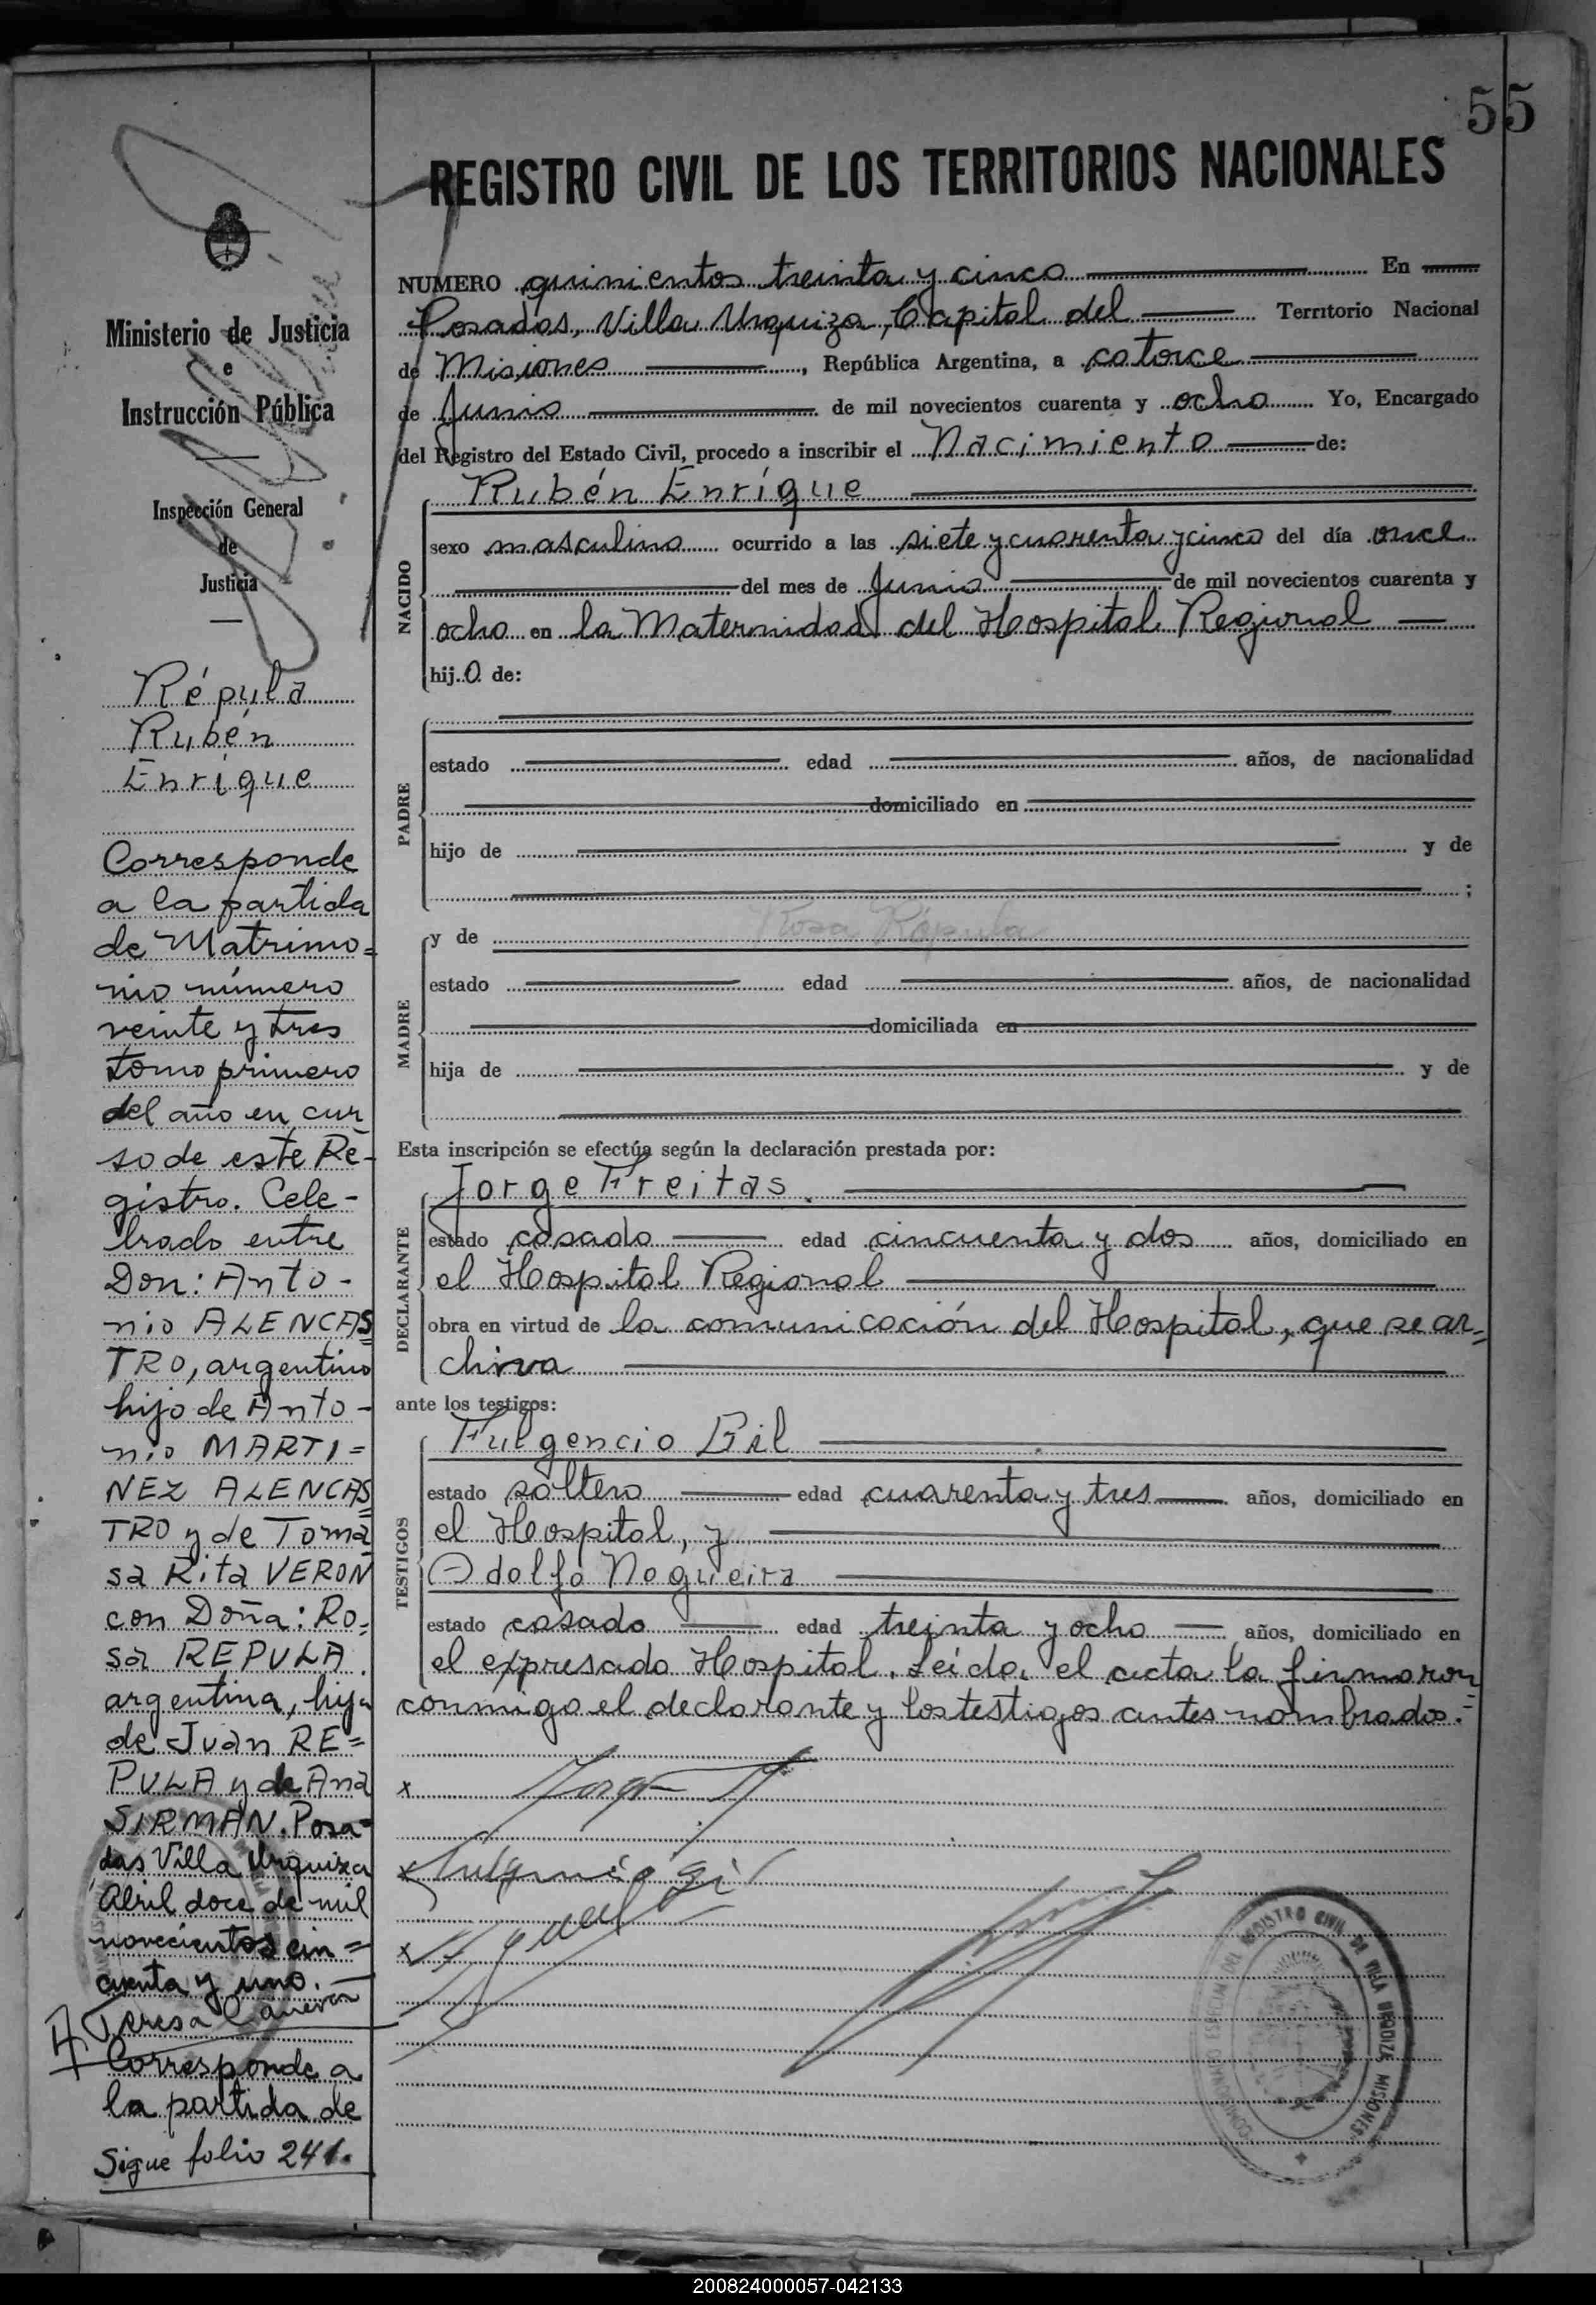 55
REGISTRO CIVIL DE LOS TERRITORIOS NACIONALES
Ministerio de Justicia
e
Instrucción Pública
Inspección General
de
Justicia
Répula
Rubén
Enrique
Corresponde
a la partida
de Matrimo=
nio número
veinte y tres
tomo primero
del año en cur
so de este Re-
gistro. Cele-
brado entre
Don: Anto-
nio ALENCAS
TRO, argentino
hijo de Anto-
nio MARTI=
NEZ ALENCAS
TRO y de Toma
sa Rita VERON
con Doña: Ro=
sa REPULA
argentina, hija
de Juan RE=
PULA y de Ana
SIRMAN. Posa-
das Villa Urquiza
Abril doce de mil
novecientos cin=
cuenta y uno.
Teresa
Corresponde a
la partida de
Sigue folio 241.
NUMERO quinientos treinta y cinco En
Posadas, Villa Urquiza, Capital del Territorio Nacional
de Misiones, República Argentina, a catorce
de Junio de mil novecientos cuarenta y ocho Yo, Encargado
del Registro del Estado Civil, procedo a inscribir el Nacimiento de:
NACIDO
Rubén Enrique
sexo masculino ocurrido a las siete y cuarenta y cinco del día once
del mes de Junio de mil novecientos cuarenta y
ocho en la Maternidad del Hospital Regional
hijo de:
PADRE
estado edad años, de nacionalidad
domiciliado en
hijo de y de
;
MADRE
y de Rosa Répula
estado edad años, de nacionalidad
domiciliada en
hija de y de
Esta inscripción se efectúa según la declaración prestada por:
DECLARANTE
Jorge Freitas.
estado casado edad cincuenta y dos años, domiciliado en
el Hospital Regional
obra en virtud de la comunicación del Hospital, que se ar=
chiva
ante los testigos:
TESTIGOS
Fulgencio Gil
estado soltero edad cuarenta y tres años, domiciliado en
el Hospital, y
Adolfo Nogueira
estado casado edad treinta y ocho años, domiciliado en
el expresado Hospital. Leída el acta la firmaron
conmigo el declarante y los testigos antes nombrados.=
x Jorge
x Fulgencio Gil
x
REGISTRO CIVIL DE VILLA URQUIZA MISIONES
200824000057-042133